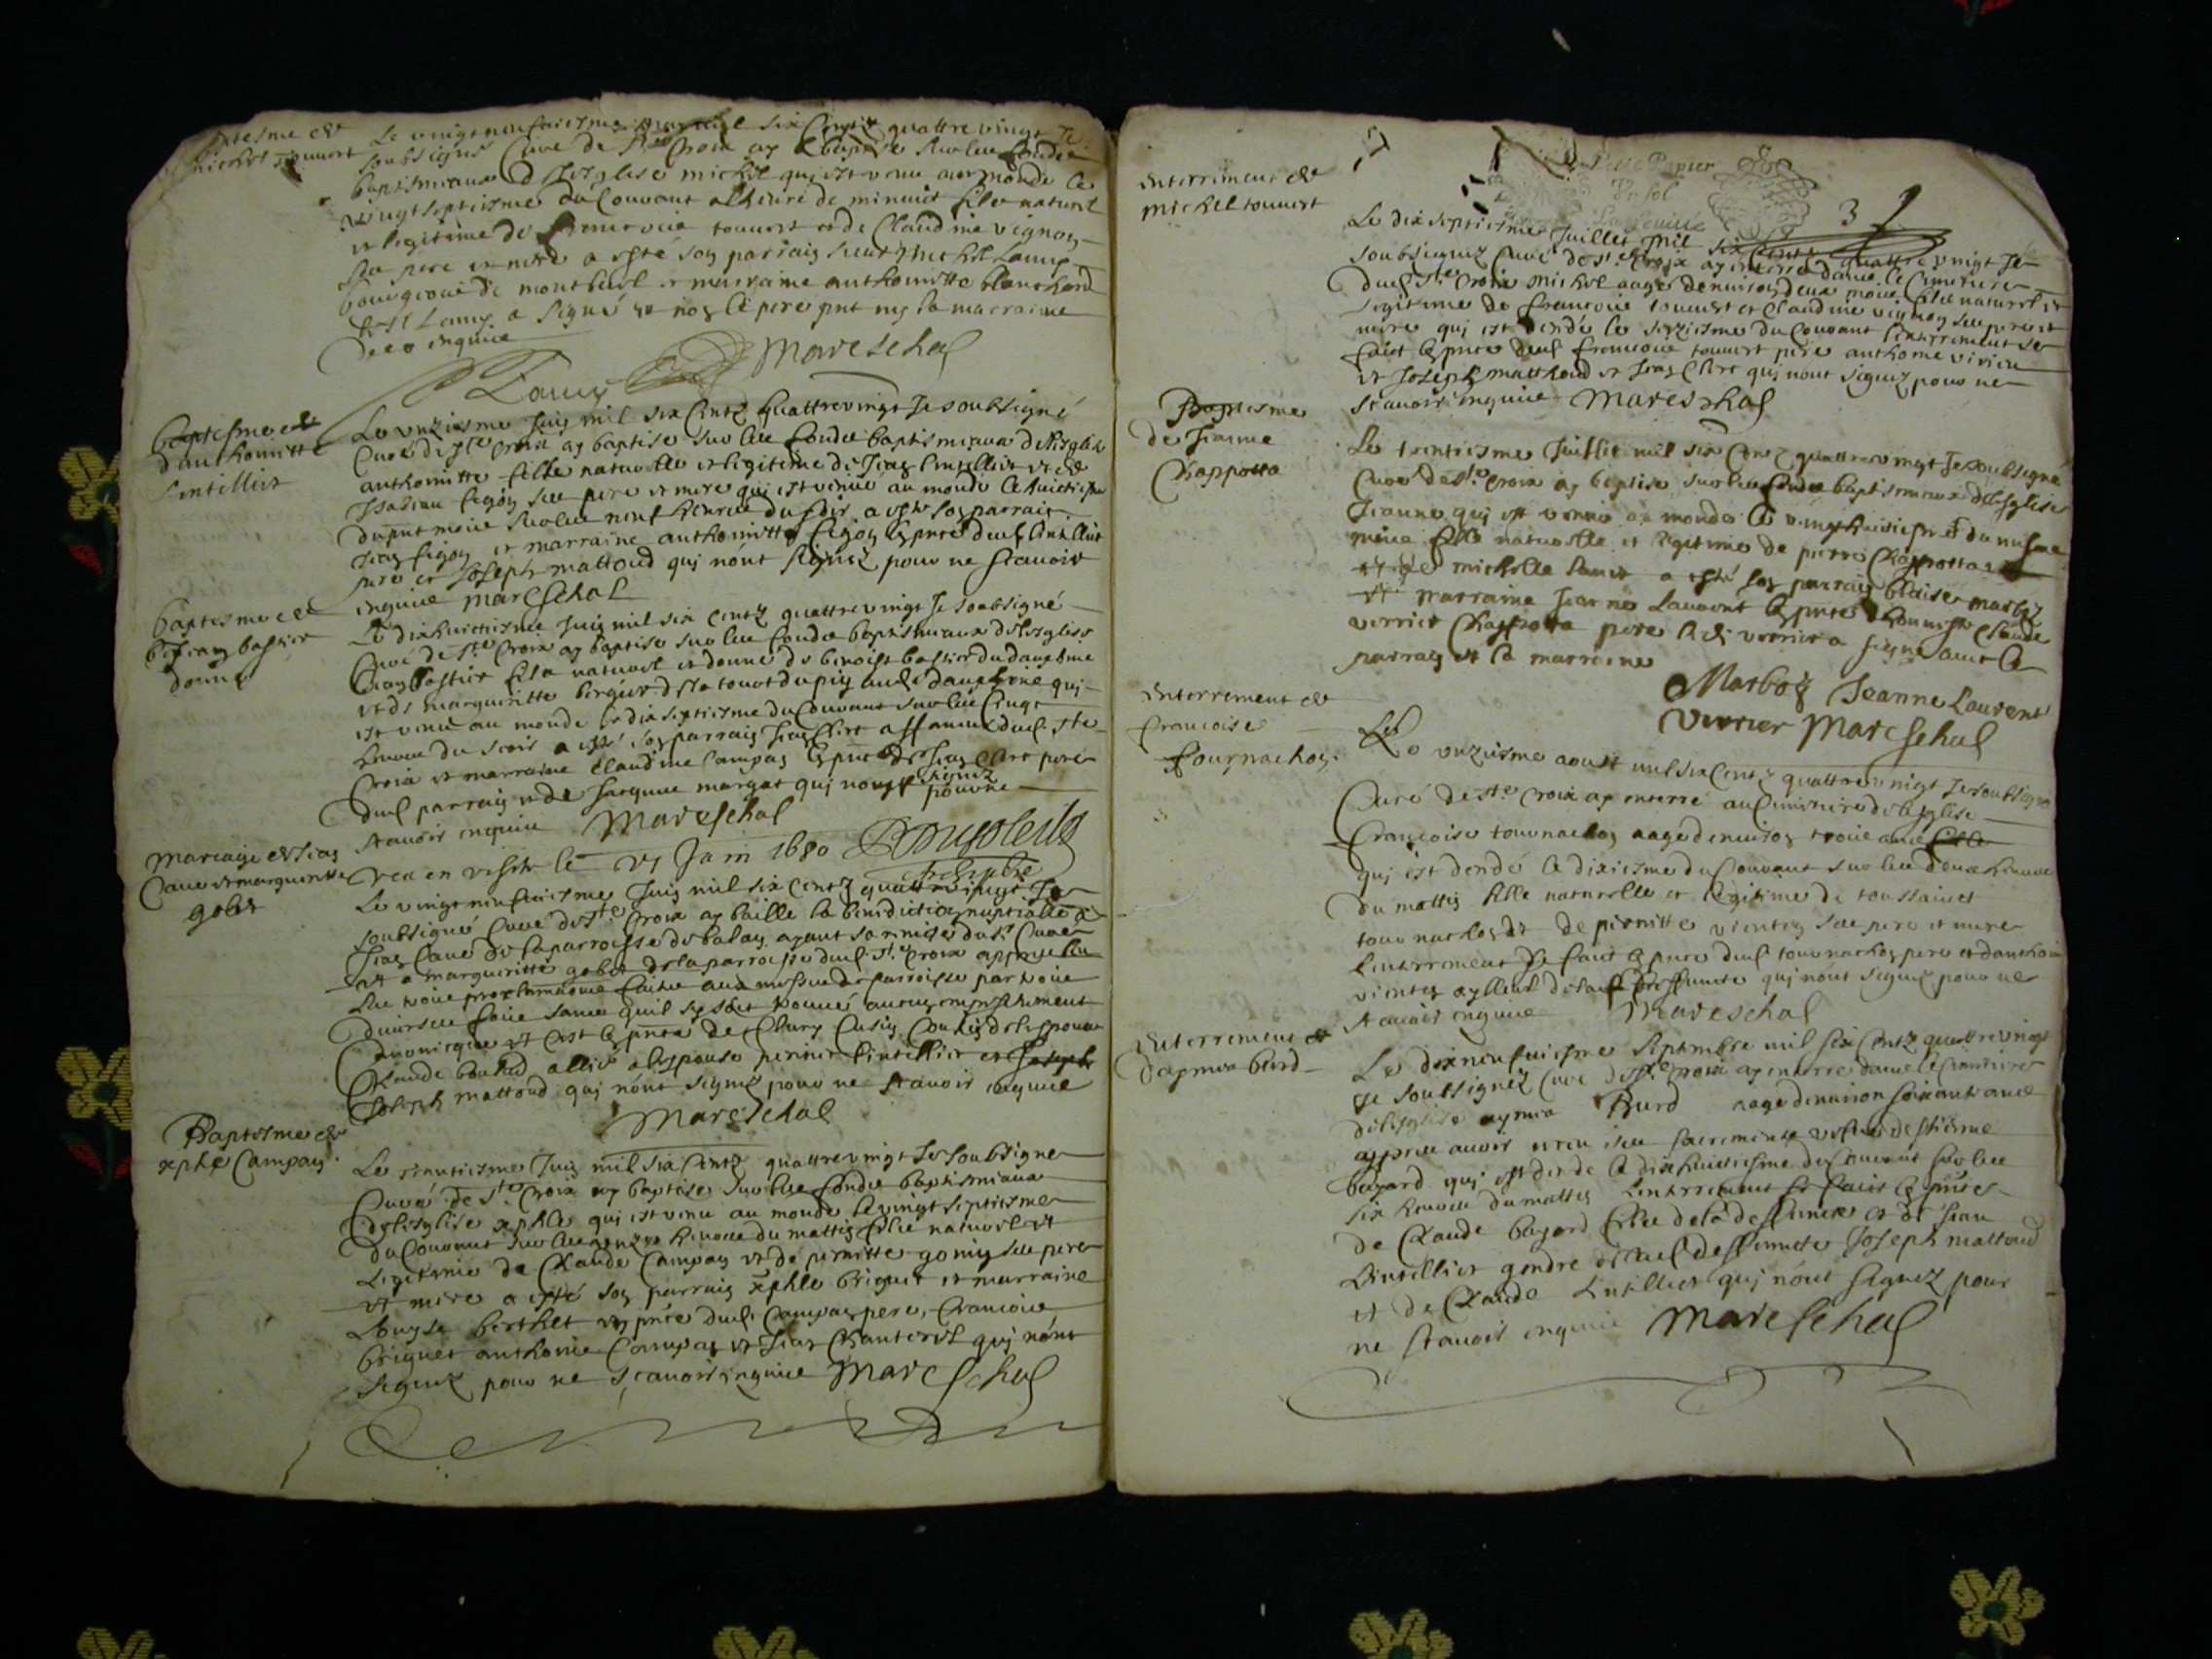 Baptesme de
michel touvert
Le vingt neufuiesme may mil six Centz quattre vingt Je
soubsigné Curé de Ste Croix ay baptisé sur les fondz
baptismeaux de lesglise michel qui est venu au monde le
vingt septiesme du Couvant a lheure de minuit filz naturel
et legitime de francois touvert et de Claudine vignon
ses pere et mere a esté son parrain sieur michel Lamy
bourgeois de montluel et marraine anthoinette blanchard
led Sr Lamy a signé et non le pere pnt ny la marraine
de ce enquis
Lamy Mareschal
Baptesme
d'anthoinette
Lintellier
Le unziesme Juin mil six Centz quattre vingt Je soubsigné
Curé de Ste Croix ay baptisé sur les fondz baptismeaux de lesglise
anthoinette fille naturelle et legitime de Jean Lintellier et de
Isabeau figon ses pere et mere qui est venue au monde le huictiesme
du pnt mois sur les neuf heures du soir a esté son parrain
Jean figon et marraine anthoinette figon es pnce dud Lintellier
pere et Joseph mattoud qui n'ont signez pour ne scavoir
enquis Mareschal
baptesme de
Jean bastier
donné
Le dixhuictiesme Juin mil six Centz quattre vingt Je soubsigné
Curé de Ste Croix ay baptisé sur les fondz baptismeaux de lesglise
Jean bastier filz naturel et donné de benoist bastier du dauphiné
et de margueritte bergier de la tour du pin aud dauphiné qui
est venu au monde le dix septiesme du Couvant sur les Cinq
heures du soir a esté son parrain Jean Clerc affaneur dud Ste
Croix et marraine Claudine Campan es pnce de Jean Clerc pere
dud parrain et de Jacques margat qui nont signez pour ne
scavoir enquis Mareschal
veu en visite le 21 Juin 1680
Mariage de Jean
Cave et margueritte
gobet
Le vingt neufuiesme Juin mil six Centz quattre vingt Je
soubsigné Curé de Ste Croix ay baillé la benediction nuptialle a
Jean Cave de la parroisse de balan ayant sa remise du Sr Curé
et a margueritte gobet de la parroisse dud Ste Croix apprès
les trois proclamations faites aux messes de parroisse par trois
divers jours sans quil se soit trouvé aucun empeschement
Canonique et Cest es pnce de Clary Cusin Cousin de lespoux
Claude bouhid allié a lespouse pernin Lintellier et Joseph
Joseph mattoud qui n'ont signez pour ne scavoir enquis
Mareschal
Baptesme de
xphle Campan
Le trentiesme Juin mil six Centz quattre vingt Je soubsigné
Curé de Ste Croix ay baptisé sur les fondz baptismeaux
de lesglise xphle qui est venu au monde le vingt septiesme
du Couvant sur les onze heures du mattin filz naturel et
Legitime de Claude Campan et de pernette gonin ses pere
et mere a esté son parrain xphle briguet et marraine
Louyse berthet es pnce dud Campan pere, francois
briguet anthoine Campan et Jean Chanteril qui n'ont
signez pour ne scavoir enquis Mareschal
Petit Papier
Un sol
3
Enterrement de
michel touvert
Le dix septiesme Juillet mil six Centz quattre vingt Je
soubsignez Curé de Ste Croix ay enterré dans le Cimetiere
dud Ste Croix michel aagé denviron deux mois filz naturel et
legitime de francois touvert et Claudine vignon ses pere et
mere qui est decedé le seiziesme du Couvant Lenterrement se
faict es pnce dud francois touvert pere anthoine vivien
et Joseph mattoud et Jean Clerc qui nont signez pour ne
scavoir enquis Mareschal
Baptesme
de Jeanne
Chapotta
Le trentiesme Juillet mil six Centz quattre vingt Je soubsigné
Curé de Ste Croix ay baptisé sur les fondz baptismeaux de lesglise
Jeanne qui est venue au monde le vingt huictiesme du mesme
mois fille naturelle et legitime de pierre Chapotta
et de michelle Lance a esté son parrain blaise marboz
et marraine Jeanne Laurent es pnce de honneste Claude
verrier Chapotta pere led verrier a signé avec le
parrain et la marraine
Marboz Jeanne Laurent
Verrier Mareschal
Enterrement de
francoise
tournachon
Le unziesme aoust mil six Centz quattre vingt Je soubsigné
Curé de Ste Croix ay enterré au Cimetiere de lesglise
francoise tournachon aagé denviron trois ans fille
qui est decedé le dixiesme du Couvant sur les deux heures
du mattin fille naturelle et legitime de toussainct
tournachon et de pernette vienten ses pere et mere
Lenterrement se faict es pnce dud tournachon pere et danthoine
vienten ayeul de lad deffuncte qui nont signez pour ne
scavoir enquis Mareschal
Enterrement de
daymra burd
Le dix neufuiesme septembre mil six Centz quattre vingt
Je soubsignéz Curé de Ste Croix ay enterré dans le Cimetiere
de lesglise aymra Burd aagé denviron soixante ans
apprès avoir receu ses sacrements vefve de estienne
bugard qui est decedé le dixhuictiesme du Couvant sur les
six heures du mattin Lenterrement se faict es pnces
de Claude bugard filz de la deffuncte et de Jean
Lintellier gendre de lad deffuncte Joseph mattoud
et de Claude Lintellier qui n'ont signez pour
ne scavoir enquis Mareschal